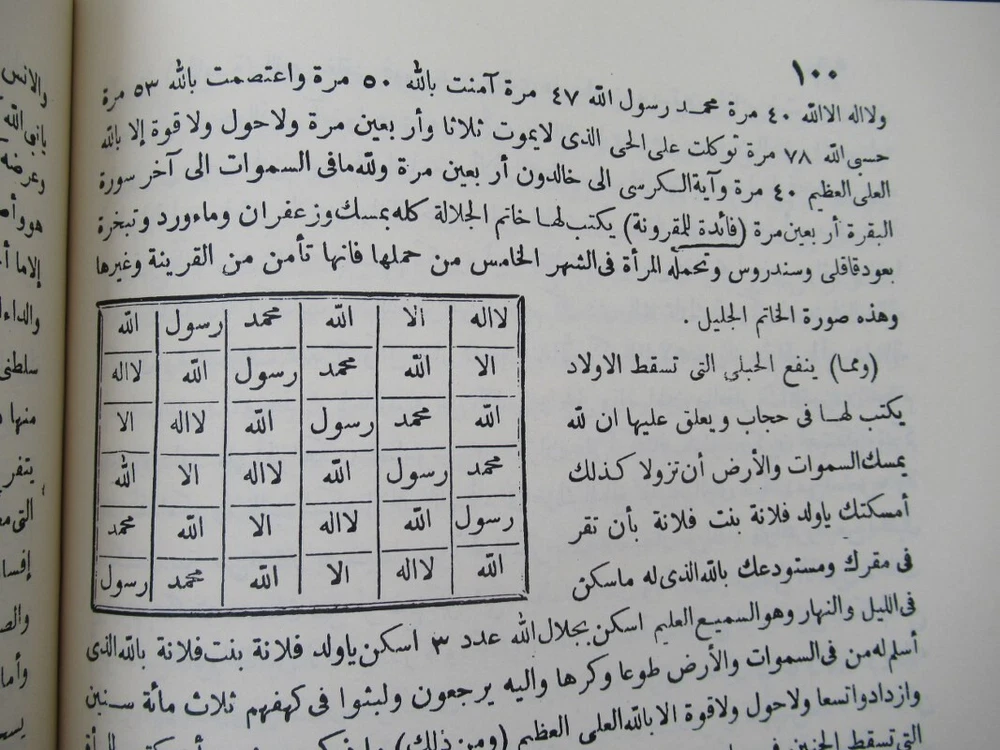 ١٠٠
ولا اله الا الله ٤٠ مرة محمد رسول الله ٤٧ مرة آمنت بالله ٥٠ مرة واعتصمت بالله ٥٣ مرة
حسبى الله ٧٨ مرة توكلت على الحى الذى لا يموت ثلاثا وأر بعين مرة ولا حول ولا قوة إلا بالله
العلى العظيم ٤٠ مرة وآية الكرسى الى خالدون أر بعين مرة ولله ما فى السموات الى آخر سورة
البقرة أر بعين مرة (فائدة للمقرونة) يكتب لها خاتم الجلالة كله بمسك وزعفران وماء ورد وتبخرة
بعود قاقلى وسندروس وتحمله المرأة فى الشهر الخامس من حملها فانها تأمن من القرينة وغيرها
وهذه صورة الخاتم الجليل .
لا اله الا الله محمد رسول الله
الا الله محمد رسول الله لا اله
الله محمد رسول الله لا اله الا
محمد رسول الله لا اله الا الله
رسول الله لا اله الا الله محمد
الله لا اله الا الله محمد رسول
(ومما) ينفع الحبلى التى تسقط الاولاد
يكتب لها فى حجاب ويعلق عليها ان لله
يمسك السموات والأرض أن تزولا كذلك
أمسكتك ياولد فلانة بنت فلانة بأن تقر
فى مقرك ومستودعك بالله الذى له ما سكن
فى الليل والنهار وهو السميع العليم اسكن بجلال الله عدد ٣ اسكن ياولد فلانة بنت فلانة بالله الذى
أسلم له من فى السموات والأرض طوعا وكرها واليه يرجعون ولبثوا فى كهفهم ثلاث مائة سنين
وازدادوا تسعا ولا حول ولا قوة الا بالله العلى العظيم (ومن ذلك)
التى تسقط الجنين
والانس
يانبى الله
وعرضه
هو وأ
إلا ما أ
والداء
سلطنى
منها
يتفر
التى
إفسا
والص
وأما